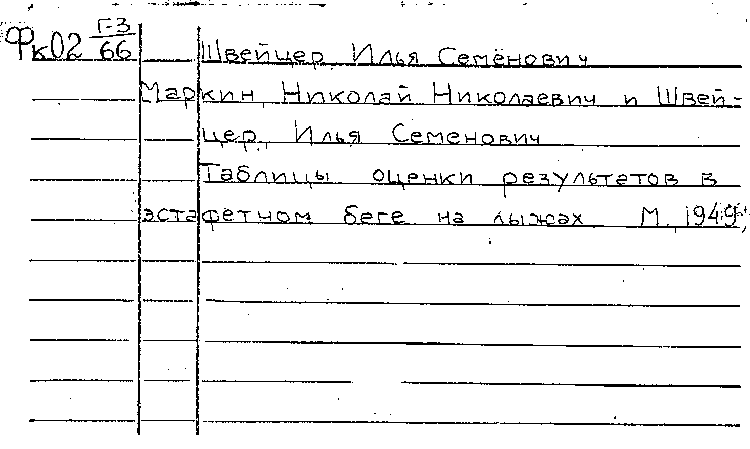 Фк02 Г-3/66 Швейцер, Илья Семёнович
Маркин, Николай Николаевич и Швей-
цер, Илья Семенович
Таблицы оценки результатов в
эстафетном беге на лыжах М., 1949,